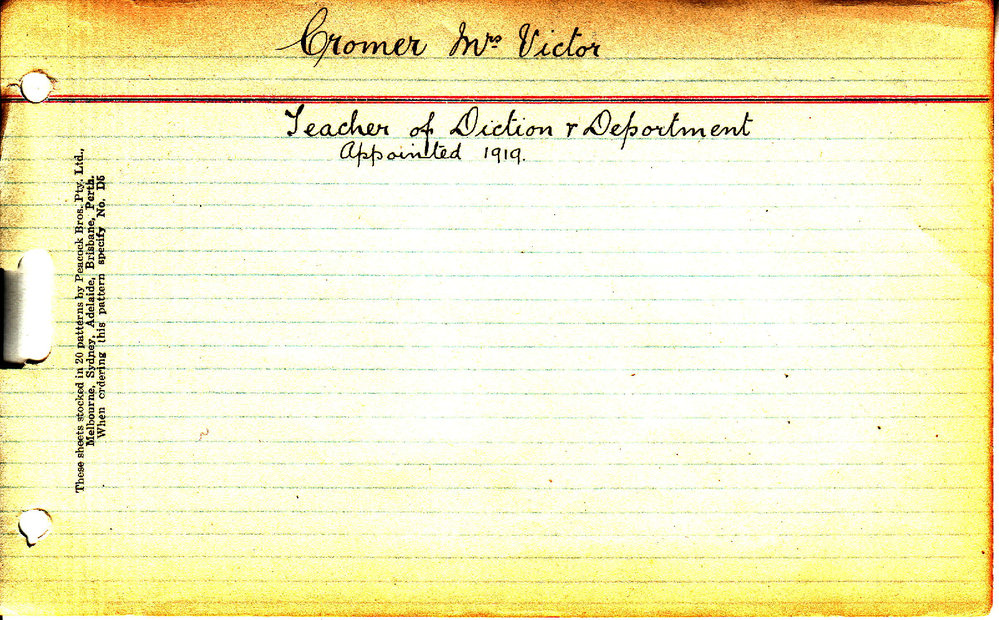 Cromer Mrs Victor
Teacher of Diction & Deportment
Appointed 1919.
These sheets stocked in 20 patterns by Peacock Bros. Pty. Ltd.,
Melbourne, Sydney, Adelaide, Brisbane, Perth.
When ordering this pattern specify No. D5